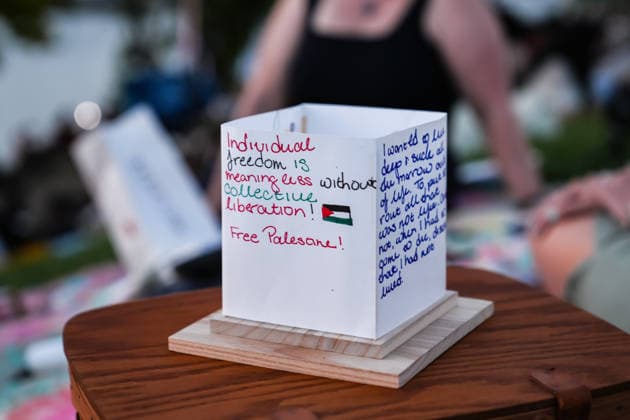 Individual
freedom is
meaning less without
collective
liberation!
Free Palesane!
I wanted to live
deep & suck all
the marrow out
of life. To put
rout all that
was not life, and
not, when I had
come to die,
that I had not
lived.